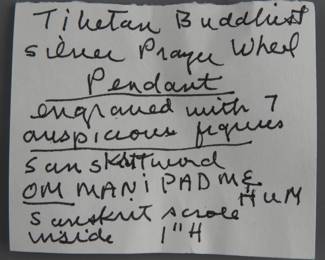 Tibetan Buddhist
silver Prayer Wheel
Pendant
engraved with 7
auspicious figures
Sanskritword
OM MANI PADME
HUM
Sanskrit scrole
inside 1"H